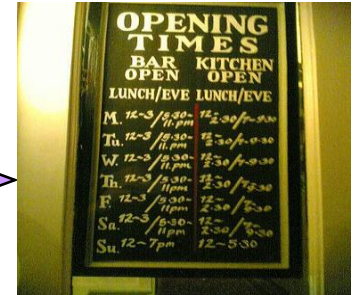 OPENING
TIMES
BAR KITCHEN
OPEN OPEN
LUNCH/EVE LUNCH/EVE
M. 12-3/5.30-11.pm 12-2.30/7-9.30
Tu. 12-3/5.30-11.pm 12-2.30/7-9.30
W. 12-3/5.30-11pm 12-2.30/7-9.30
Th. 12-3/5.30-11pm 12-2.30/
F. 12-3/5.30-11pm 12-2.30/
Sa. 12-3/6.30-11pm 12-2.30/
Su. 12-7pm 12-5.30